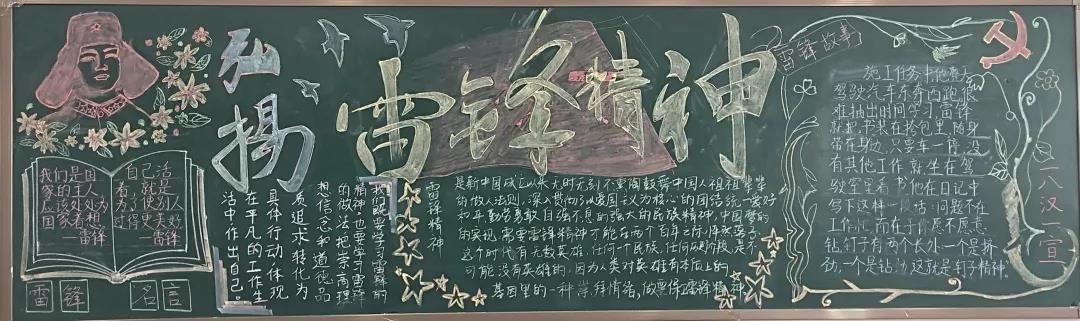 弘扬
雷锋精神
我们是国
家的主人
应该处处为
国家着想
—雷锋
自己活
着,就是
为了使别人
过得更美好
—雷锋
雷锋 名言
我们既要学习雷锋的
精神,也要学习雷锋
的做法,把崇高理
想信念和道德品
质追求转化为
具体行动,体现
在平凡的工作生
活中作出自己。
雷锋精神
是新中国成立以来无时无刻不熏陶鼓舞中国人祖祖辈辈
的做人法则,深入贯彻了以爱国主义为核心的团结统一爱好
和平勤劳勇敢自强不息的强大的民族精神。中国梦的
的实现,需要雷锋精神才能在两个百年之际
这个时代有无数英雄,任何一个民族,任何阶段,是不
可能没有英雄的,因为人类对英雄有本质上的
基因里的一种崇拜情绪,
雷锋故事
施工任务中,他整天
驾驶汽车东奔西跑,很
难抽出时间学习,雷锋
就把书装在挎包里,随身
带在身边,只要车一停,没
有其他工作,就坐在驾
驶室里看书,他在日记中
写下这样一段话:问题不在
工作忙,而在于你愿不愿意
钻,钉子有两个长处:一个是挤
劲,一个是钻劲,这就是钉子精神
二八汉一宣